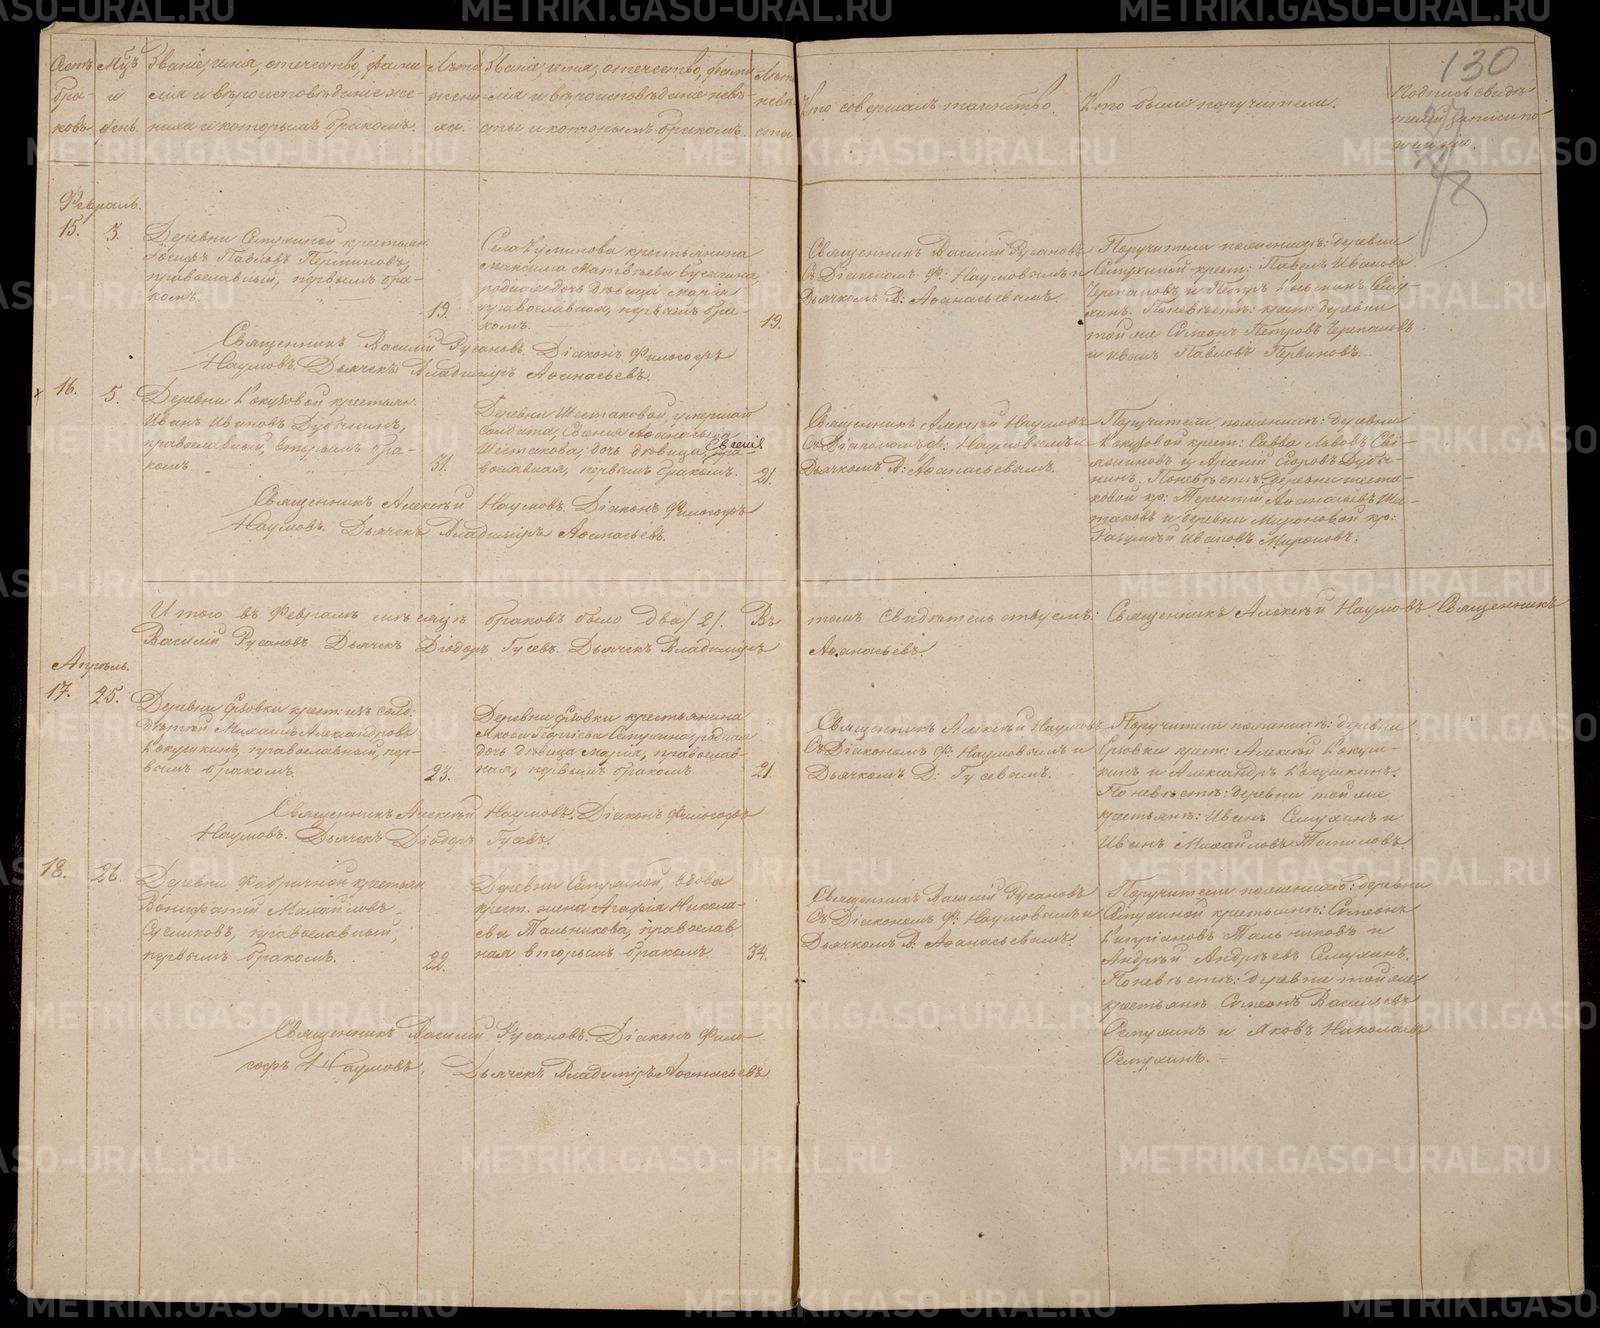 130
Счетъ браковъ
Мцъ и день.
Званіе, имя, отечество, фамилія и вѣроисповѣданіе жениха и которымъ бракомъ.
Лѣта жениха.
Званіе, имя, отечество, фамилія и вѣроисповѣданіе невѣсты и которымъ бракомъ.
Лѣта невѣсты
Кто совершалъ таинство.
Кто были поручители.
Подпись свидѣтелей записи по желанію.
Февраль.
15.
3.
Деревни Семухиной крестьян.
Іосифъ Павловъ
православный, первымъ бра-
комъ.
19.
Села крестьянина
Максима Матвѣева
родная дочь дѣвица Марія
православная, первымъ бра-
комъ.
19.
Священникъ Василій Русановъ
Съ Діакономъ Ф: Наумовымъ и
Дьячкомъ В: Аѳанасьевымъ.
Поручители по женихѣ: деревни
Семухиной крест: Павелъ Ивановъ
Черепановъ и Петръ
Поневѣстѣ: крест: деревни
той же Симеонъ Петровъ Черепановъ
и Иванъ Павловъ
Священникъ Василій Русановъ. Діаконъ Филосоѳъ
Наумовъ. Дьячекъ Владиміръ Аѳанасьевъ.
16.
5.
Деревни Кокузовой крестьян.
Иванъ Ивановъ Дубынинъ,
православный, вторымъ бра-
комъ.
31.
Деревни Шестаковой умершаго
солдата,
Шестакова, дочь дѣвица, пра-
вославная, первымъ бракомъ.
21.
Священникъ Алексѣй Наумовъ
Съ Діакономъ Ф: Наумовымъ и
Дьячкомъ В: Аѳанасьевымъ.
Поручители по женихѣ: деревни
Кокузовой крест: Савва Львовъ
и Дубы-
нинъ. Поневѣстѣ деревни Шеста-
ковой кр: Терентій Аѳанасьевъ Шес-
таковъ и деревни Мироновой кр:
Ивановъ Мироновъ.
Священникъ Алексѣй Наумовъ. Діаконъ Филосоѳъ
Наумовъ. Дьячекъ Владиміръ Аѳанасьевъ.
Итого въ Февралѣ мѣсяцѣ браковъ было два /2/. Въ томъ свидѣтельствуемъ: Священникъ Алексѣй Наумовъ Священникъ
Василій Русановъ. Дьячекъ Діодоръ Гусевъ. Дьячекъ Владиміръ Аѳанасьевъ.
Апрѣль.
17.
25.
Деревни крест: изъ солд:
дѣтей Михаилъ Александровъ
Кокушкинъ, православный, пер-
вымъ бракомъ.
23.
Деревни крестьянина
Якова родная
дочь дѣвица Марія, православ-
ная, первымъ бракомъ
21.
Священникъ Алексѣй Наумовъ
Съ Діакономъ Ф. Наумовымъ и
Дьячкомъ Д: Гусевымъ.
Поручители по женихѣ: деревни
крест: Алексѣй Кокуш-
кинъ и Александръ Кокушкинъ.
По невѣстѣ: деревни той же
крестьянъ: Иванъ Семухинъ и
Иванъ Михайловъ Томиловъ
Священникъ Алексѣй Наумовъ. Діаконъ Филосоѳъ
Наумовъ. Дьячекъ Діодоръ Гусевъ.
18.
26.
Деревни Фабричной крестьян
Вонифатій Михайловъ
православный,
первымъ бракомъ.
22.
Деревни Семухиной, вдова
крест. жена Агафія Никола-
ева Тальникова, православ
ная вторымъ бракомъ
34.
Священникъ Василій Русановъ
Съ Діакономъ Ф: Наумовымъ и
Дьячкомъ В: Аѳанасьевымъ.
Поручители по женихѣ: деревни
Семухиной крестьянъ: Симеонъ
Кипріановъ Тальниковъ и
Андрей Андреевъ Семухинъ.
Поневѣстѣ: деревни той же
крестьянъ Симеонъ Васильевъ
Семухинъ и Яковъ Николаевъ
Семухинъ.
Священникъ Василій Русановъ. Діаконъ Фило-
соѳъ Наумовъ. Дьячекъ Владиміръ Аѳанасьевъ
METRIKI.GASO-URAL.RU